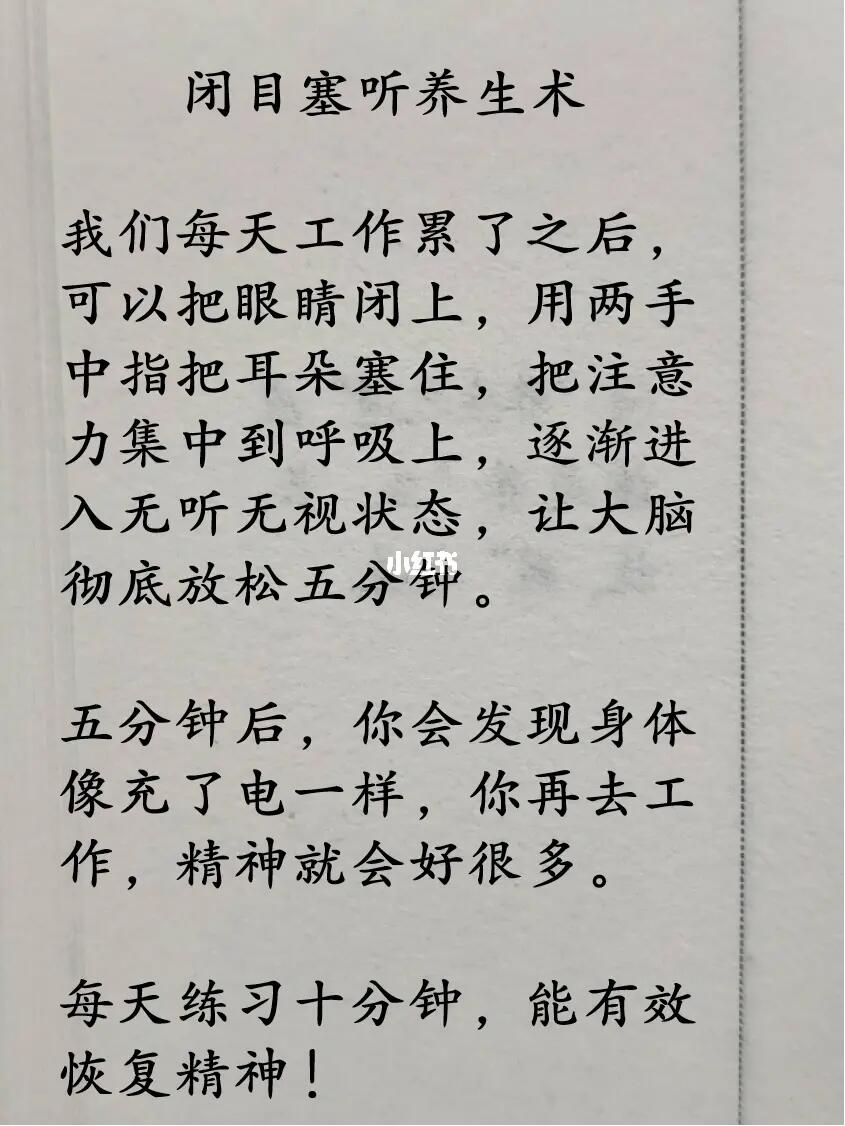 闭目塞听养生术
我们每天工作累了之后，
可以把眼睛闭上，用两手
中指把耳朵塞住，把注意
力集中到呼吸上，逐渐进
入无听无视状态，让大脑
彻底放松五分钟。
小红书
五分钟后，你会发现身体
像充了电一样，你再去工
作，精神就会好很多。
每天练习十分钟，能有效
恢复精神！